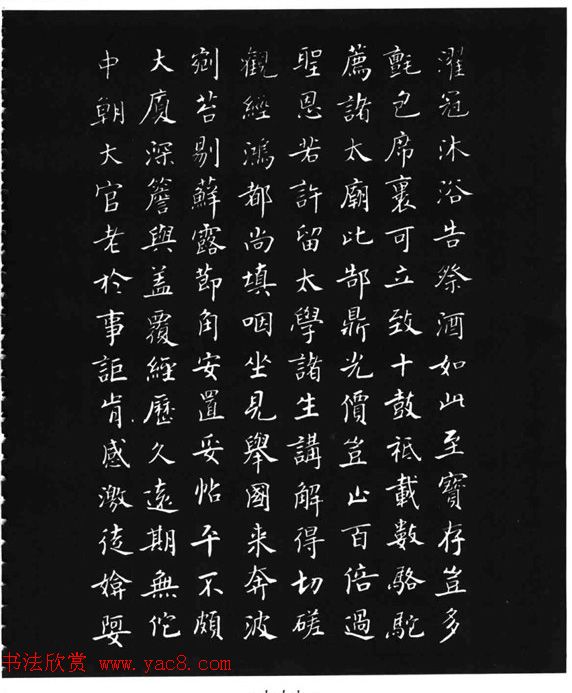 濯冠沐浴告祭酒如此至寶存豈多
氈包席裹可立致十鼓祗載數駱駝
薦諸太廟比郜鼎光價豈止百倍過
聖恩若許留太學諸生講解得切磋
觀經鴻都尚填咽坐見舉國来奔波
剜苔剔蘇露節角安置妥帖平不頗
大廈深簷與盖覆經歷久遠期無佗
中朝大官老於事詎肯感激徒媕婀
书法欣赏 www.yac8.com